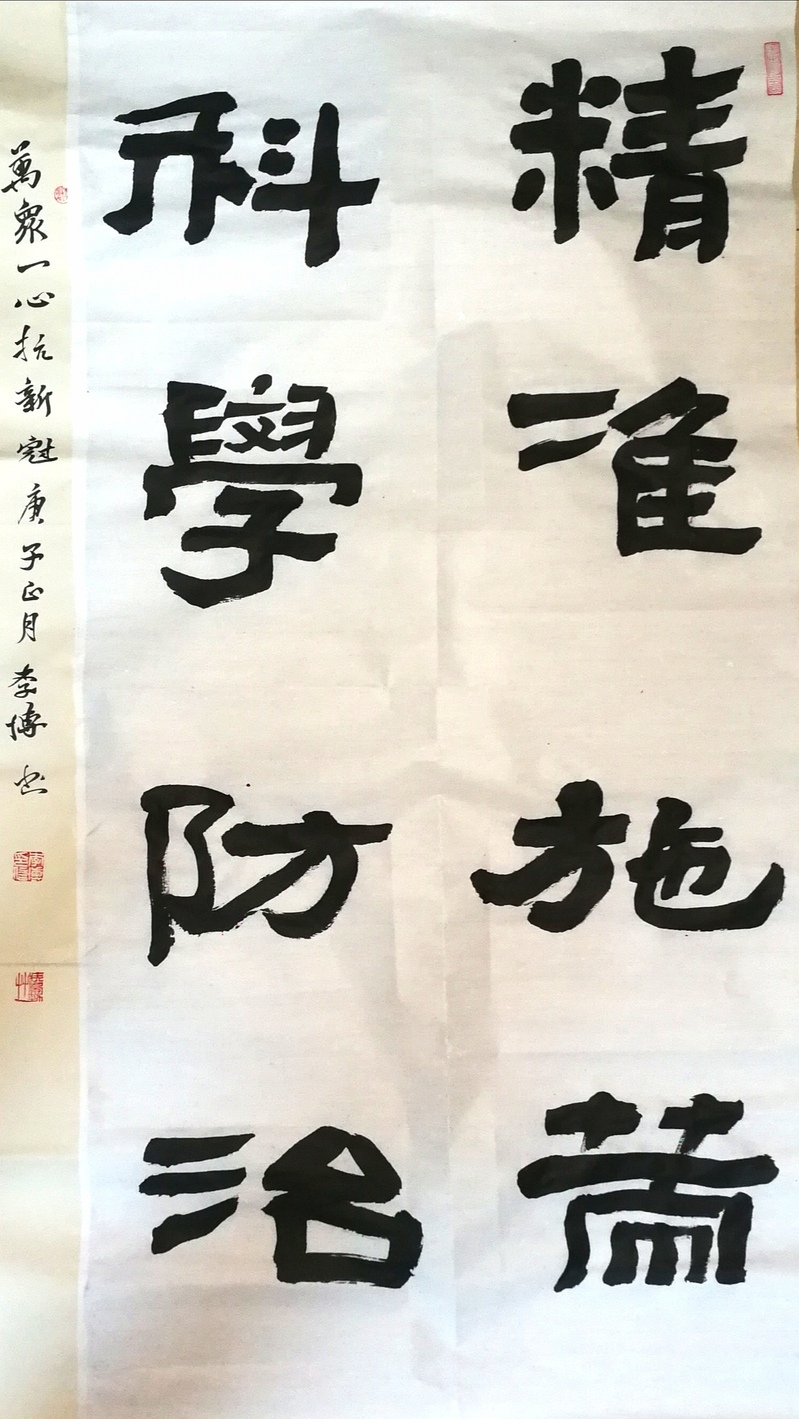 精准施策
科學防治
萬眾一心抗新冠庚子正月李博书